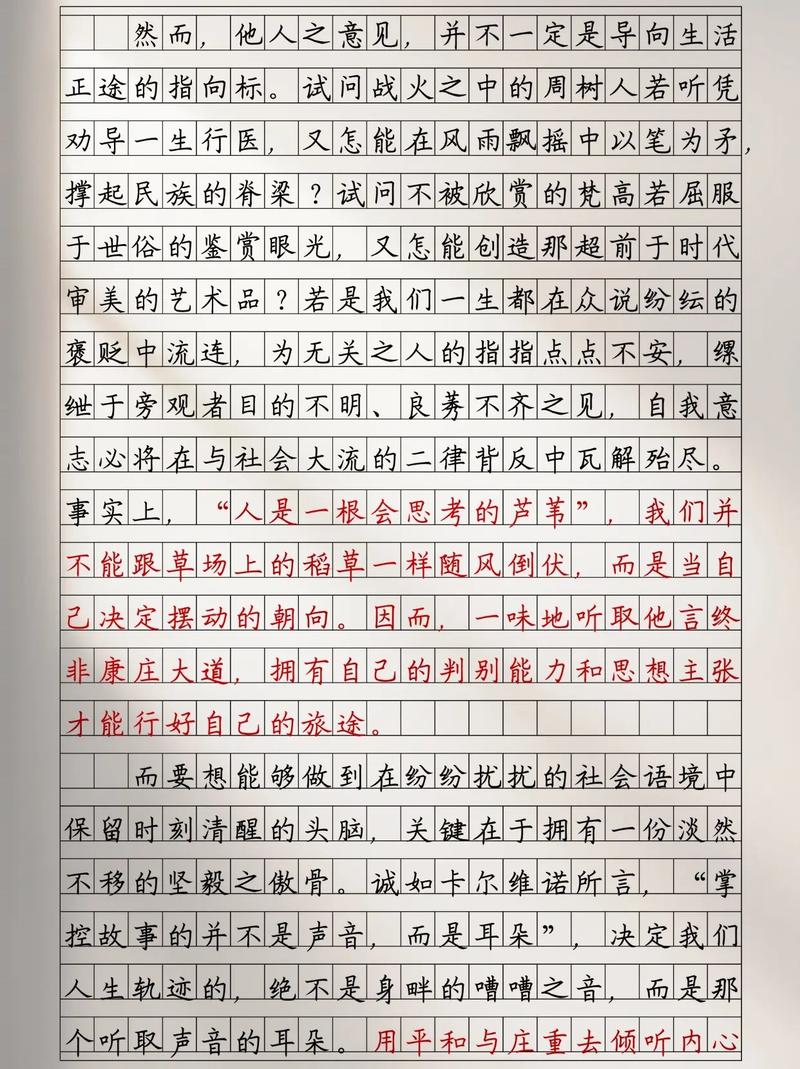 然而，他人之意见，并不一定是导向生活
正途的指向标。试问战火之中的周树人若听凭
劝导一生行医，又怎能在风雨飘摇中以笔为矛，
撑起民族的脊梁？试问不被欣赏的梵高若屈服
于世俗的鉴赏眼光，又怎能创造那超前于时代
审美的艺术品？若是我们一生都在众说纷纭的
褒贬中流连，为无关之人的指指点点不安，缧
绁于旁观者目的不明、良莠不齐之见，自我意
志必将在与社会大流的二律背反中瓦解殆尽。
事实上，“人是一根会思考的芦苇”，我们并
不能跟草场上的稻草一样随风倒伏，而是当自
己决定摆动的朝向。因而，一味地听取他言终
非康庄大道，拥有自己的判别能力和思想主张
才能行好自己的旅途。
而要想能够做到在纷纷扰扰的社会语境中
保留时刻清醒的头脑，关键在于拥有一份淡然
不移的坚毅之傲骨。诚如卡尔维诺所言，“掌
控故事的并不是声音，而是耳朵”，决定我们
人生轨迹的，绝不是身畔的嘈嘈之音，而是那
个听取声音的耳朵。用平和与庄重去倾听内心